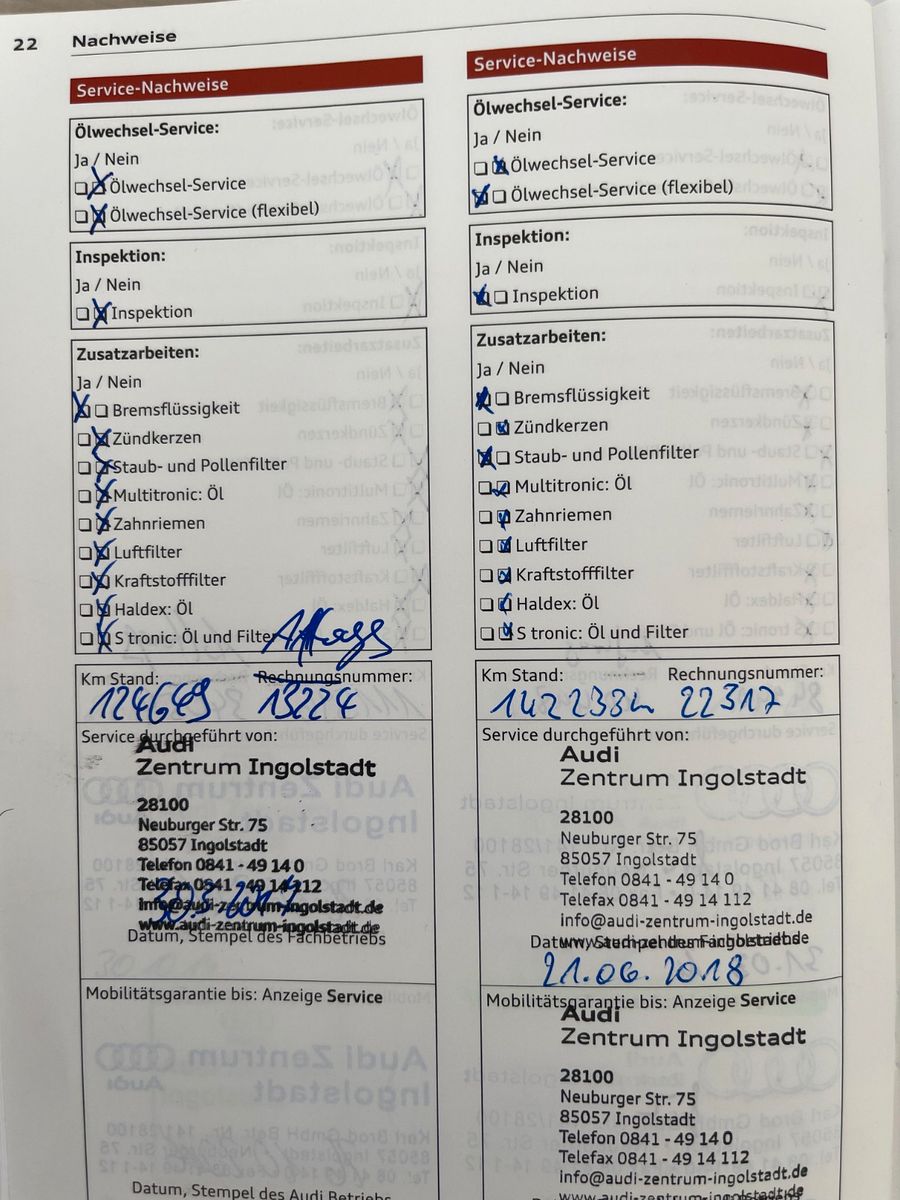 22 Nachweise
Service-Nachweise
Ölwechsel-Service:
Ja / Nein
Ölwechsel-Service
Ölwechsel-Service (flexibel)
Inspektion:
Ja / Nein
Inspektion
Zusatzarbeiten:
Ja / Nein
Bremsflüssigkeit
Zündkerzen
Staub- und Pollenfilter
Multitronic: Öl
Zahnriemen
Luftfilter
Kraftstofffilter
Haldex: Öl
S tronic: Öl und Filter
Km Stand: Rechnungsnummer:
124649 13224
Service durchgeführt von:
Audi
Zentrum Ingolstadt
28100
Neuburger Str. 75
85057 Ingolstadt
Telefon 0841 - 49 14 0
Telefax 0841 - 49 14 112
info@audi-zentrum-ingolstadt.de
www.audi-zentrum-ingolstadt.de
Datum, Stempel des Fachbetriebs
Mobilitätsgarantie bis: Anzeige Service
Datum, Stempel des Audi Betriebs
Service-Nachweise
Ölwechsel-Service:
Ja / Nein
Ölwechsel-Service
Ölwechsel-Service (flexibel)
Inspektion:
Ja / Nein
Inspektion
Zusatzarbeiten:
Ja / Nein
Bremsflüssigkeit
Zündkerzen
Staub- und Pollenfilter
Multitronic: Öl
Zahnriemen
Luftfilter
Kraftstofffilter
Haldex: Öl
S tronic: Öl und Filter
Km Stand: Rechnungsnummer:
142238km 22317
Service durchgeführt von:
Audi
Zentrum Ingolstadt
28100
Neuburger Str. 75
85057 Ingolstadt
Telefon 0841 - 49 14 0
Telefax 0841 - 49 14 112
info@audi-zentrum-ingolstadt.de
www.audi-zentrum-ingolstadt.de
Datum, Stempel des Fachbetriebs
21.06.2018
Mobilitätsgarantie bis: Anzeige Service
Audi
Zentrum Ingolstadt
28100
Neuburger Str. 75
85057 Ingolstadt
Telefon 0841 - 49 14 0
Telefax 0841 - 49 14 112
info@audi-zentrum-ingolstadt.de
www.audi-zentrum-ingolstadt.de